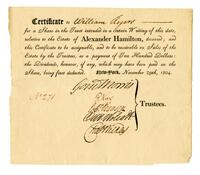 Certificate to William Rogers
for a Share in the Trust intended in a certain Writing of this date,
relative to the Estate of Alexander Hamilton, deceased; and
this Certificate to be assignable, and to be receivable on Sales of the
Estate by the Trustees, as a payment of Two Hundred Dollars:
the Dividends, however, if any, which may have been paid on the
Share, being first deducted. New-York, November 29th, 1804.
Gouv Morris
No 271
Trustees.